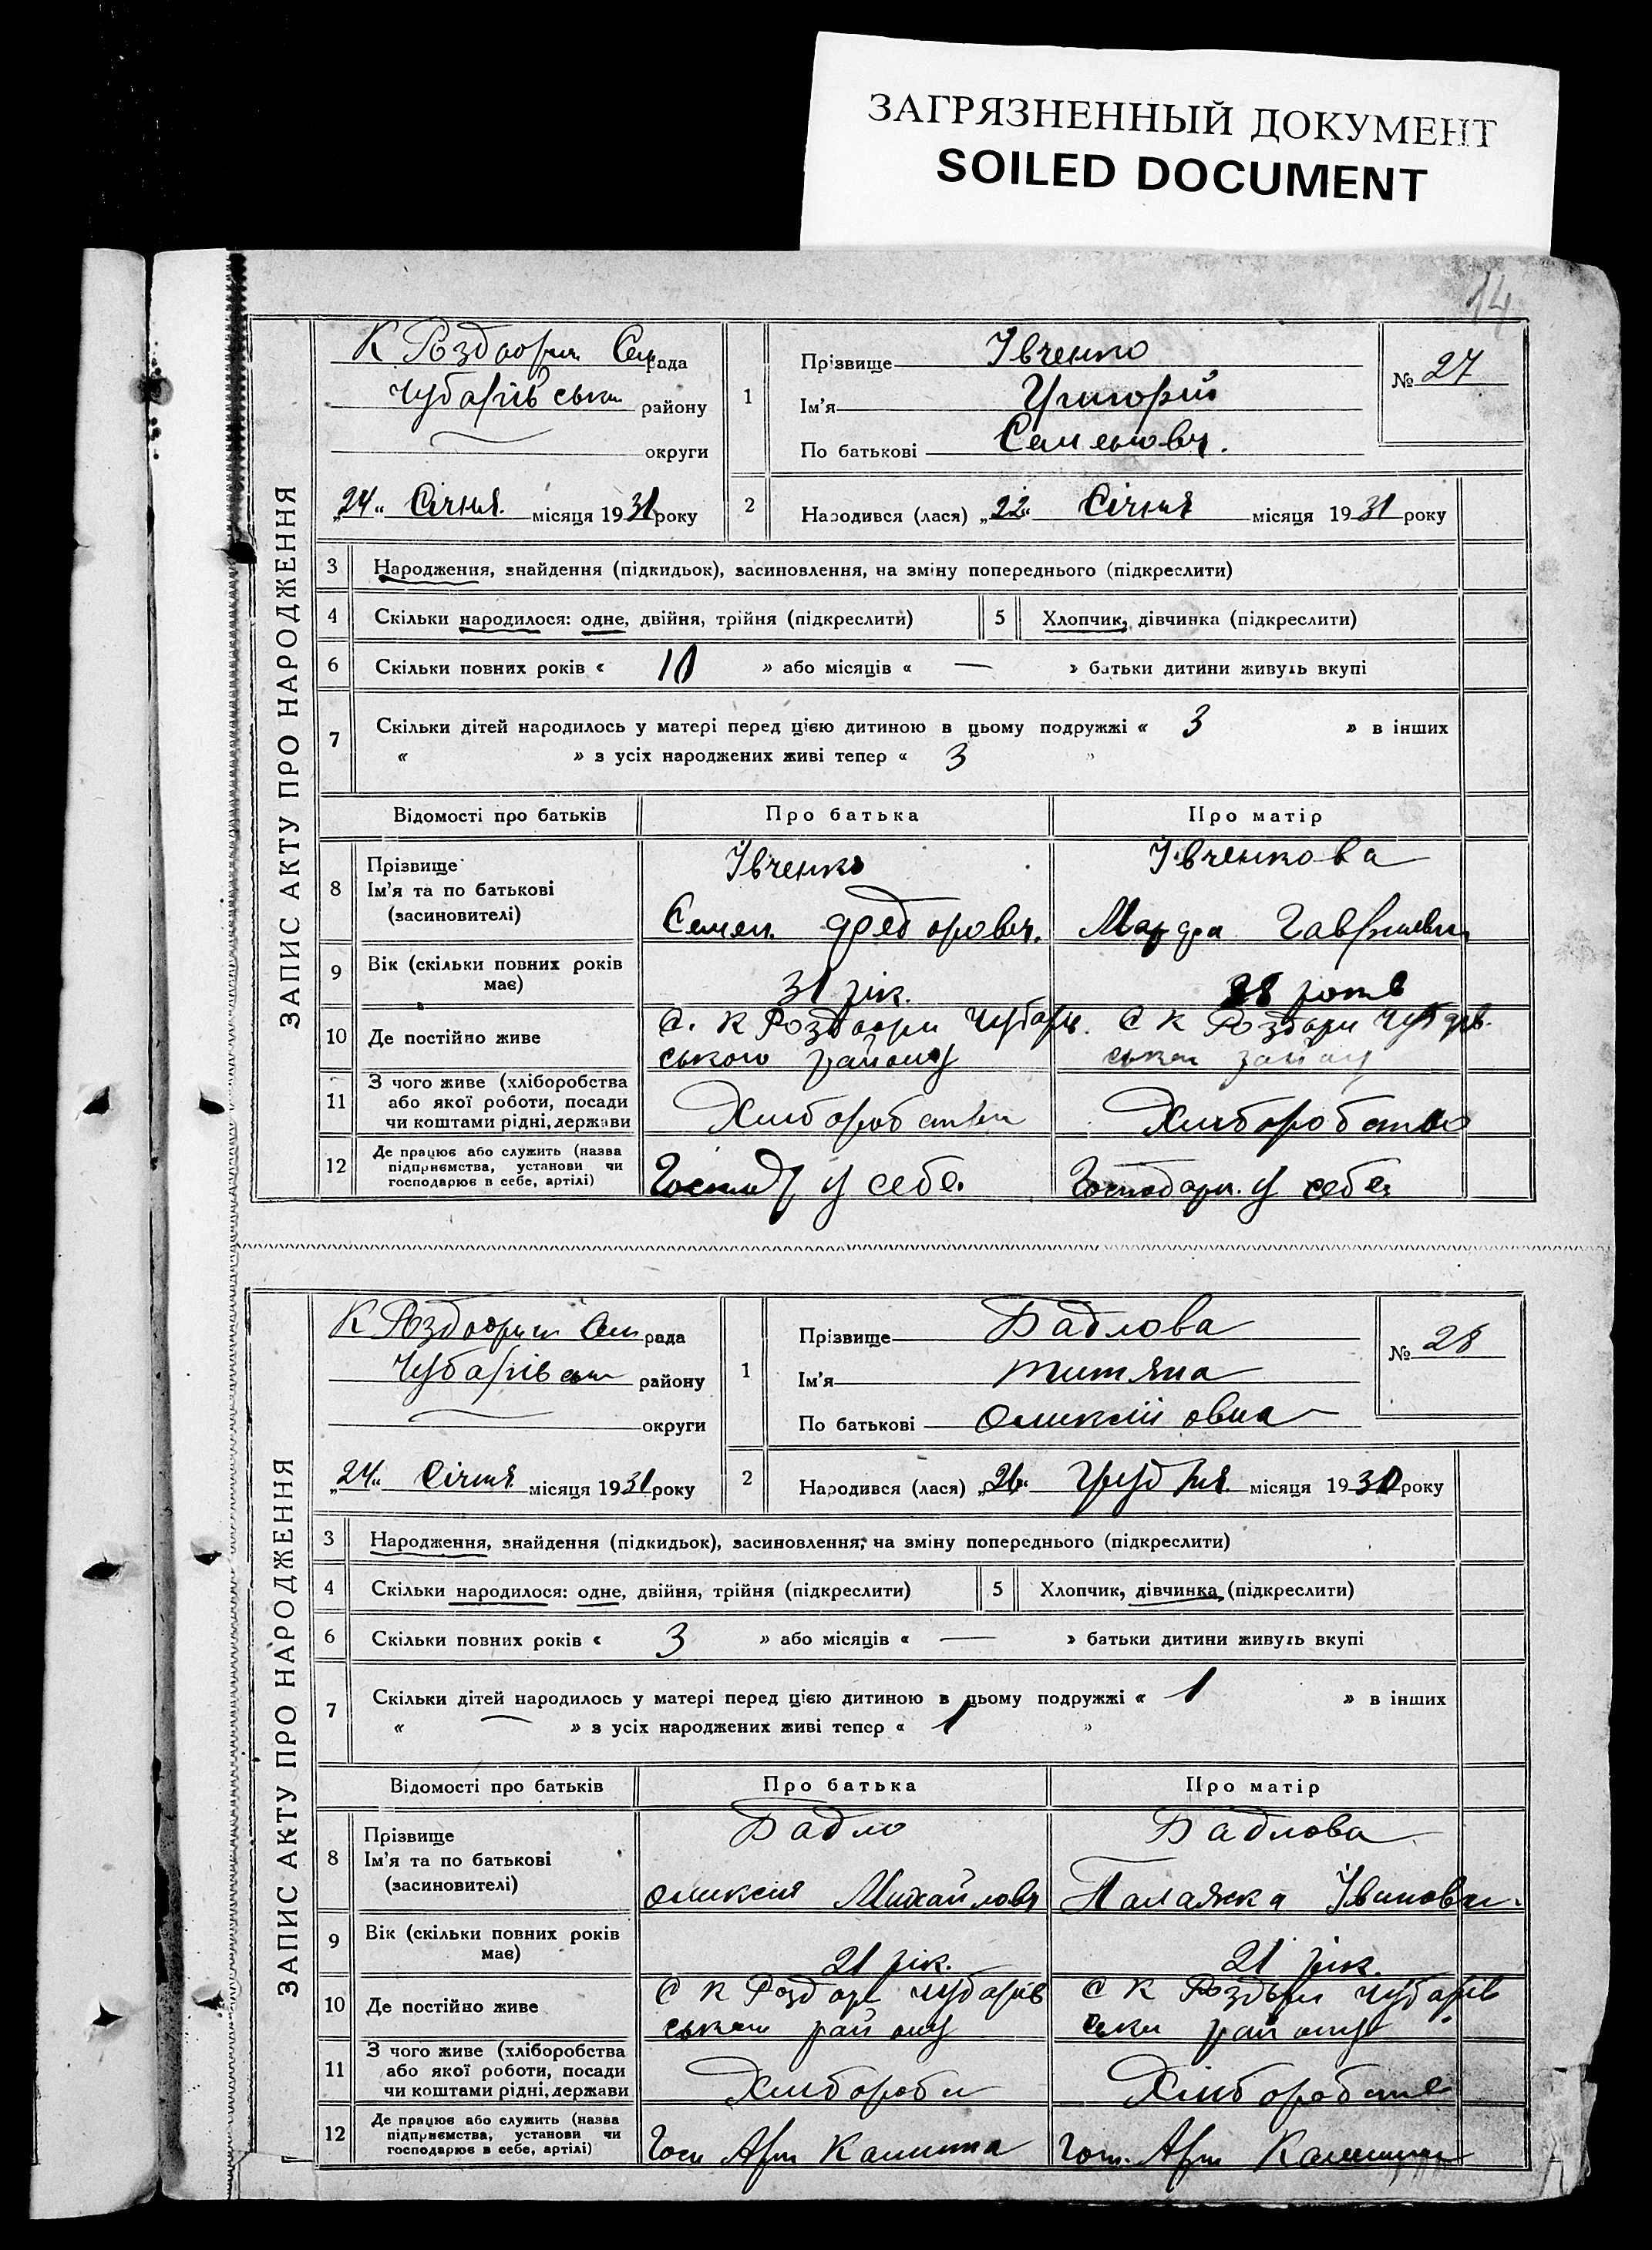 ЗАГРЯЗНЕННЫЙ ДОКУМЕНТ
SOILED DOCUMENT
14
ЗАПИС АКТУ ПРО НАРОДЖЕННЯ
К Роздори Сел рада
Чубарівськ району
округи
„24“ Січня місяця 1931 року
1
Прізвище Івченко
Ім'я Григорій
По батькові Семенович.
№ 27
2
Народився (лася) „22“ Січня місяця 1931 року
3 Народження, знайдення (підкидьок), засиновлення, на зміну попереднього (підкреслити)
4 Скільки народилося: одне, двійня, трійня (підкреслити)
5 Хлопчик, дівчинка (підкреслити)
6 Скільки повних років « 10 » або місяців « — » батьки дитини живуть вкупі
7 Скільки дітей народилось у матері перед цією дитиною в цьому подружжі « 3 » в інших
« » з усіх народжених живі тепер « 3 »
Відомості про батьків Про батька Про матір
8 Прізвище Ім'я та по батькові (засиновителі)
Івченко Івченкова
Семен Федорович. Марфа
9 Вік (скільки повних років має)
31 рік. 28 років
10 Де постійно живе
С. К Роздори Чубарів С К Роздори Чубарів.
ського району району
11 З чого живе (хліборобства або якої роботи, посади чи коштами рідні, держави
Хліборобства Хліборобство
12 Де працює або служить (назва підприємства, установи чи господарює в себе, артілі)
у себе. Господар. у себе
ЗАПИС АКТУ ПРО НАРОДЖЕННЯ
К Роздори Сел рада
Чубарівськ району
округи
„24“ Січня місяця 1931 року
1
Прізвище Бадлова
Ім'я Титяна
По батькові Оликсіївна
№ 28
2
Народився (лася) „26“ Грудня місяця 1930 року
3 Народження, знайдення (підкидьок), засиновлення, на зміну попереднього (підкреслити)
4 Скільки народилося: одне, двійня, трійня (підкреслити)
5 Хлопчик, дівчинка (підкреслити)
6 Скільки повних років « 3 » або місяців « — » батьки дитини живуть вкупі
7 Скільки дітей народилось у матері перед цією дитиною в цьому подружжі « 1 » в інших
« — » з усіх народжених живі тепер « 1 »
Відомості про батьків Про батька Про матір
8 Прізвище Ім'я та по батькові (засиновителі)
Бадло Бадлова
Михайлович Палажка Івановна
9 Вік (скільки повних років має)
21 рік. 21 рік.
10 Де постійно живе
С К Роздори Чубарів С К Роздори Чубарів
району району
11 З чого живе (хліборобства або якої роботи, посади чи коштами рідні, держави
Хлібороб Хліборобств
12 Де працює або служить (назва підприємства, установи чи господарює в себе, артілі)
Госп Арт Калинина Госп. Арт Калинина